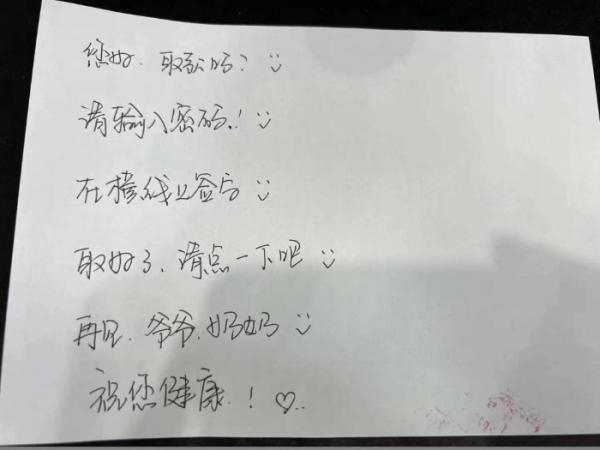 您好.取款吗?
请输入密码.!
在横线上签名
取好了、请点一下吧
再见.爷爷.奶奶
祝您健康.!